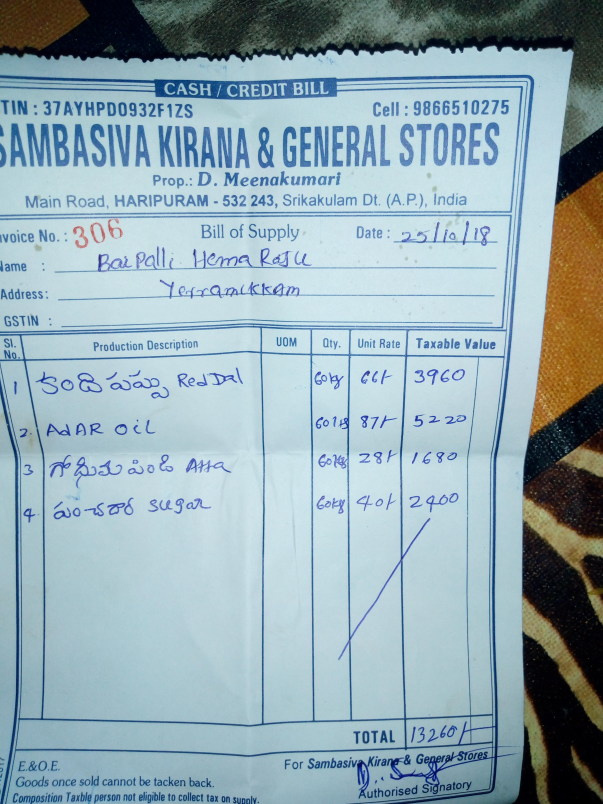 CASH / CREDIT BILL
TIN : 37AYHPD0932F1ZS Cell : 9866510275
SAMBASIVA KIRANA & GENERAL STORES
Prop.: D. Meenakumari
Main Road, HARIPURAM - 532 243, Srikakulam Dt. (A.P.), India
nvoice No. : 306 Bill of Supply Date : 25/10/18
Name : Barpalli Hema Raju
Address: Yerramukkam
GSTIN :
Sl. No. Production Description UOM Qty. Unit Rate Taxable Value
1 కందిపప్పు Red Dal 60kg 66/- 3960
2 AdAR Oil 60 87/- 5220
3 గోధుమ పిండి Atta 60kg 28/- 1680
4 పంచదార sugar 60kg 40/- 2400
TOTAL 13260/-
E.&O.E. For Sambasiva Kirana & General Stores
Goods once sold cannot be tacken back.
Authorised Signatory
Composition Taxble person not eligible to collect tax on supply.